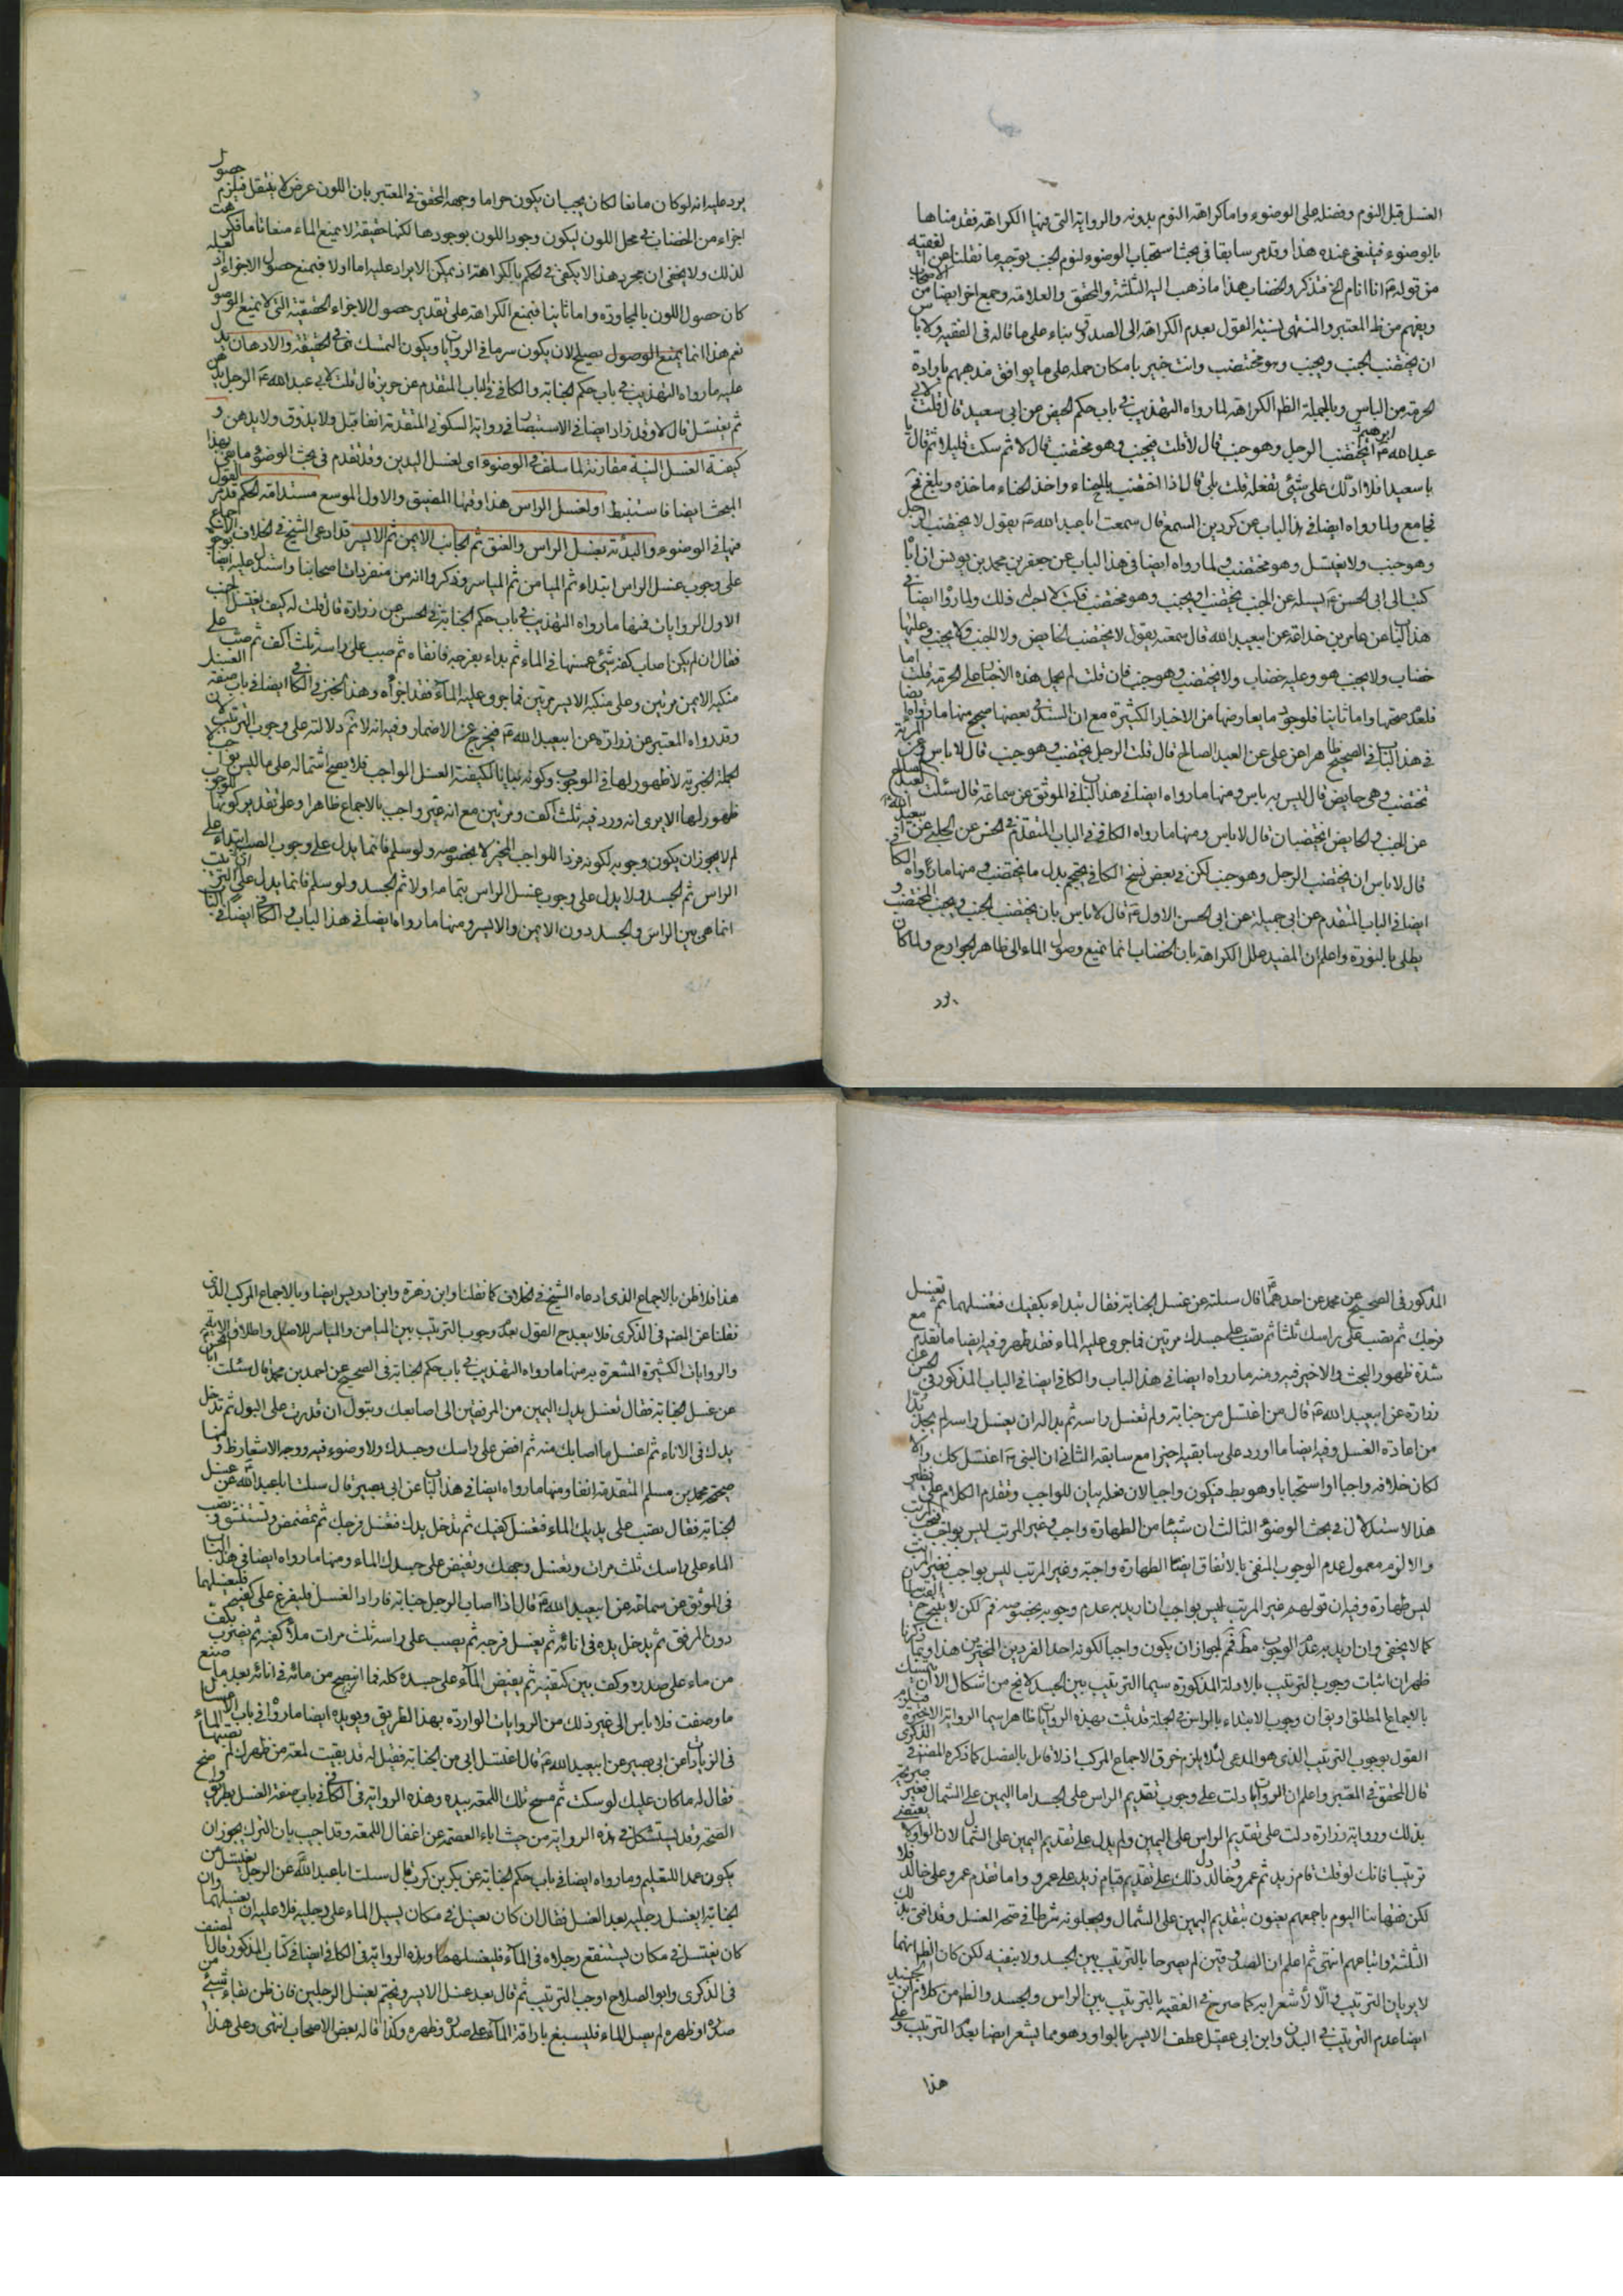 الغسل قبل النوم وفضله على الوضوء واما كراهته النوم بدونه والرواية التى فيها الكراهة فقد مناها
بالوضوء فينبغى عنده هذا وقد مر سابقا فى بحث استحباب الوضوء لنوم الجنب توجيه ما نقلنا عن الفقيه
من قوله ع انا انام الخ فتذكر والخضاب هذا ما ذهب اليه الثلثة والمحقق والعلامة وجمع اخر ايضا من الاصحاب
ويفهم من ظ المعتبر والمنتهى نسبة القول بعدم الكراهة الى الصدوق بناء على ما قاله فى الفقيه ولا باس
ان يختضب الجنب ويجنب وهو مختضب وانت خبير بامكان حمله على ما يوافق مذهبهم بارادة
الحرمة من الباس وبالجملة الظ الكراهة لما رواه التهذيب فى باب حكم الحيض عن ابى سعيد قال قلت لابى
عبد الله ع ايختضب الرجل وهو جنب قال لا قلت فيجنب وهو مختضب قال لا ثم سكت قليلا ثم قال يا
با سعيد افلا ادلك على شئ تفعله قلت بلى قال اذا اختضبت بالحناء واخذ الحناء ماخذه وبلغ فح
فجامع ولما رواه ايضا فى هذا الباب عن كردين المسمع قال سمعت ابا عبد الله ع يقول لا يختضب الرجل
وهو جنب ولا يغتسل وهو مختضب ولما رواه ايضا فى هذا الباب عن جعفر بن محمد بن يونس ان اباه
كتب الى ابى الحسن ع يسئله عن الجنب يختضب او يجنب وهو مختضب فكتب لا احب ذلك ولما رواه ايضا فى
هذا الباب عن عامر بن خداعة عن ابيعبد الله قال سمعته يقول لا يختضب الحايض ولا الجنب ولا يجنب وعليها
خضاب ولا يجنب هو وعليه خضاب ولا يختضب وهو جنب فان قلت لم يحمل هذه الاخبار على الحرمة قلت اما
فلعدم صحتها واما ثانيا فلوجود ما يعارضها من الاخبار الكثيرة مع ان السند فى بعضها صحيح منها ما رواه ايضا
فى هذا الباب فى الصحيح ظاهرا عن على عن العبد الصالح قال قلت الرجل يختضب وهو جنب قال لا باس وعن المرئة
تختضب وهى حايض قال ليس به باس ومنها ما رواه ايضا فى هذا الباب فى الموثق عن سماعة قال سئلت العبد الصالح
عن الجنب والحايض ايختضبان قال لا باس ومنها ما رواه الكافى فى الباب المتقدم فى الحسن عن الحلبى عن ابيعبد الله ع
قال لا باس ان يختضب الرجل وهو جنب لكن فى بعض نسخ الكافى يحتجم بدل يختضب ومنها ما رواه الكافى
ايضا فى الباب المتقدم عن ابى جميلة عن ابى الحسن الاول ع قال لا باس بان يختضب الجنب ويجنب المختضب و
يطلى بالنورة واعلم ان المفيد علل الكراهة بان الخضاب انما يمنع وصول الماء الى ظاهر الجوارح ولما كان
يرد
يرد عليه انه لو كان مانعا لكان يجب ان يكون حراما وجهه المحقق فى المعتبر بان اللون عرض لا ينتقل فيلزم حصول
اجزاء من الخضاب فى محل اللون ليكون وجود اللون بوجودها لكنها حقيقة لا تمنع الماء منعا تاما فكرهت
لذلك ولا يخفى ان مجرد هذا لا يكفى فى الحكم بالكراهة اذ يمكن الايراد عليه اما اولا فبمنع حصول الاجزاء
كان حصول اللون بالمجاورة واما ثانيا فبمنع الكراهة على تقدير حصول الاجزاء الحقيقية التى لا تمنع الوصول
نعم هذا انما يمنع الوصول يصلح لان يكون سرما فى الروايات ويكون التمسك بها فى الحقيقة والادهان يدل
عليه ما رواه التهذيب فى باب حكم الجنابة والكافى فى الباب المتقدم عن حريز قال قلت لابى عبد الله ع الرجل يدهن
ثم يغتسل قال لا وقد زاد ايضا فى الاستبصار فى رواية السكونى المتقدمة انفا قبل ولا يذوق ولا يدهن و
كيفية الغسل النية مقارنة لما سلف فى الوضوء اى لغسل اليدين وقد تقدم فى بحث الوضوء ما فى هذا
المبحث ايضا فاستنبط او لغسل الراس هذا وقتها المضيق والاول الموسع مستدامة الحكم قد مر القول
فيها فى الوضوء والبدئة بغسل الراس والعنق ثم الجانب الايمن ثم الايسر قد ادعى الشيخ فى الخلاف الاجماع
على وجوب غسل الراس ابتداء ثم الميامن ثم المياسر وذكروا انه من منفردات اصحابنا واستدل عليه ايضا
الاول الروايات فمنها ما رواه التهذيب فى باب حكم الجنابة فى الحسن عن زرارة قال قلت له كيف يغتسل الجنب
فقال ان لم يكن اصاب كفه شئ غمسها فى الماء ثم بداء بفرجه فانقاه ثم صب على راسه ثلث اكف ثم صب على
منكبه الايمن مرتين وعلى منكبه الايسر مرتين فما جرى عليه الماء فقد اجزاه وهذا الخبر فى الكافى ايضا فى باب صفة الغسل
وقد رواه المعتبر عن زرارة عن ابيعبد الله ع فيخرج عن الاضمار وفيه انه لا تم دلالته على وجوب الترتيب لان
الجملة الخبرية لا ظهور لها فى الوجوب وكونه بيانا لكيفية الغسل الواجب فلا يصح اشتماله على ما ليس بواجب لا
ظهور لها الا يرى انه ورد فيه ثلث اكف ومرتين مع انه غير واجب بالاجماع ظاهرا وعلى تقدير كونها للوجوب
لم لا يجوز ان يكون وجوبه لكونه فردا للواجب المخير لا بخصوصه ولو سلم فانما يدل على وجوب الصب ابتداء على
الراس ثم الجسد ولا يدل على وجوب غسل الراس بتمامه اولا ثم الجسد ولو سلم فانما يدل على ان الترتيب
انما هى بين الراس والجسد دون الايمن والايسر ومنها ما رواه ايضا فى هذا الباب والكافى ايضا فى الباب
المذكور فى الصحيح عن محمد عن احدهما ع قال سئلته عن غسل الجنابة فقال تبداء بكفيك فتغسلهما ثم تغسل
فرجك ثم تصب على راسك ثلثا ثم تصب على جسدك مرتين فما جرى عليه الماء فقد طهر وفيه ايضا ما تقدم مع
شدة ظهور البحث والاخير فيه ومنه ما رواه ايضا فى هذا الباب والكافى ايضا فى الباب المذكور فى الحسن عن
زرارة عن ابيعبد الله ع قال من اغتسل من جنابة ولم تغسل راسه ثم بدا له ان يغسل راسه لم يجد بدا
من اعادة الغسل وفيه ايضا ما اورد على سابقيه اخيرا مع سابقه الثانى ان النبى ص اغتسل كك والا
لكان خلافه واجبا او استحبابا وهو بط فيكون واجبا لان فعله بيان للواجب وتقدم الكلام على نظير
هذا الاستدلال فى بحث الوضوء الثالث ان شيئا من الطهارة واجب وغير المرتب ليس بواجب فيجب المرتب
والا لزم معمول عدم الوجوب المنفى بالاتفاق ايضا الطهارة واجبة وغير المرتب ليس بواجب فغير المرتب
ليس طهارة وفيه ان قولهم غير المرتب ليس بواجب ان اريد به عدم وجوبه بخصوصه فم لكن لا ينتج القياسان
كما لا يخفى وان اريد به عدم الوجوب مط فم لجواز ان يكون واجبا لكونه احد الفردين المخيرين هذا وبما ذكرنا
ظهر ان اثبات وجوب الترتيب بالادلة المذكورة سيما الترتيب بين الجسد لا يخ من اشكال الا ان يتمسك
بالاجماع المطلق او بق ان وجوب الابتداء بالراس فى الجملة قد ثبت بهذه الروايات ظاهرا سيما الرواية الاخيرة فيلزم
القول بوجوب الترتيب الذى هو المدعى لئلا يلزم خرق الاجماع المركب اذ لا قايل بالفصل كما ذكره المصنف فى الذكرى
قال المحقق فى المعتبر واعلم ان الروايات دلت على وجوب تقديم الراس على الجسد اما اليمين على الشمال فغير صريحة
بذلك ورواية زرارة دلت على تقديم الراس على اليمين ولم يدل على تقديم اليمين على الشمال لان الواو لا يقتضى
ترتيبا فانك لو قلت قام زيد ثم عمرو وخالد دل ذلك على تقديم قيام زيد على عمرو واما تقدم عمرو على خالد فلا
لكن فقهائنا اليوم باجمعهم يفتون بتقديم اليمين على الشمال ويجعلونه شرطا فى صحة الغسل وقد افتى بذلك
الثلثة واتباعهم انتهى ثم اعلم ان الصدوقين لم يصرحا بالترتيب بين الجسد ولا بنفيه لكن كان الظ انهما
لا يريان الترتيب فيه والا لاشعرا به كما صرح فى الفقيه بالترتيب بين الراس والجسد والظ من كلام ابن الجنيد
ايضا عدم الترتيب فى البدن وابن ابى عقيل عطف الايسر بالواو وهو مما يشعر ايضا بعدم الترتيب وعلى
هذا
هذا فلا ظن بالاجماع الذى ادعاه الشيخ فى الخلاف كما نقلنا وابن زهرة وابن ادريس ايضا وبالاجماع المركب الذى
نقلنا عن المصنف فى الذكرى فلا يبعد ح القول بعدم وجوب الترتيب بين الميامن والمياسر للاصل واطلاق الاية
والروايات الكثيرة المشعرة به منها ما رواه التهذيب فى باب حكم الجنابة فى الصحيح عن احمد بن محمد قال سئلت ابا الحسن
عن غسل الجنابة فقال تغسل يدك اليمين من المرفقين الى اصابعك وتبول ان قدرت على البول ثم تدخل
يدك فى الاناء ثم اغسل ما اصابك منه ثم افض على راسك وجسدك ولا وضوء فيه ووجه الاشعار ظ ومنها
صحيح محمد بن مسلم المتقدمة انفا ومنها ما رواه ايضا فى هذا الباب عن ابى بصير قال سئلت ابا عبد الله ع عن غسل
الجنابة فقال تصب على يديك الماء فتغسل كفيك ثم تدخل يدك فتغسل فرجك ثم تمضمض وتستنشق وتصب
الماء على راسك ثلث مرات وتغسل وجهك وتفيض على جسدك الماء ومنها ما رواه ايضا فى هذا الباب
فى الموثق عن سماعة عن ابيعبد الله ع قال اذا اصاب الرجل جنابة فاراد الغسل فليفرغ على كفيه فليغسلهما
دون المرفق ثم يدخل يده فى انائه ثم يغسل فرجه ثم يصب على راسه ثلث مرات ملأ كفيه ثم يضرب بكف
من ماء على صدره وكف بين كتفيه ثم يفيض الماء على جسده كله فما انتضح من مائه فى انائه بعد ما صنع
ما وصفت فلا باس الى غير ذلك من الروايات الواردة بهذا الطريق ويؤيده ايضا ما رواه فى باب الاغسال
فى الزيادات عن ابى بصير عن ابيعبد الله ع قال اغتسل ابى من الجنابة فقيل له قد بقيت لمعة من ظهرك لم يصبها الماء
فقال له ما كان عليك لو سكت ثم مسح تلك اللمعة بيده وهذه الرواية فى الكافى فى باب صفة الغسل بطريق واضح
الصحة وقد يستشكل فى هذه الرواية من حيث اباء العصمة عن اغفال اللمعة وقد اجيب بان الترك يجوز ان
يكون عمدا للتعليم وما رواه ايضا فى باب حكم الجنابة عن بكر بن كرب قال سئلت ابا عبد الله عن الرجل يغتسل من
الجنابة ايغسل رجليه بعد الغسل فقال ان كان يغتسل فى مكان يسيل الماء على رجليه فلا عليه ان لا يغسلهما وان
كان يغتسل فى مكان يستنقع رجلاه فى الماء فليغسلهما وهذه الرواية فى الكافى ايضا فى كتاب المذكور قال المصنف
فى الذكرى وابو الصلاح اوجب الترتيب ثم قال بعد غسل الايسر ويختم بغسل الرجلين فان ظن بقاء شئ من
صدره او ظهره لم يصل الماء فليسبغ باراقة الماء على صدره وظهره وكذا قاله بعض الاصحاب انتهى وعلى هذا